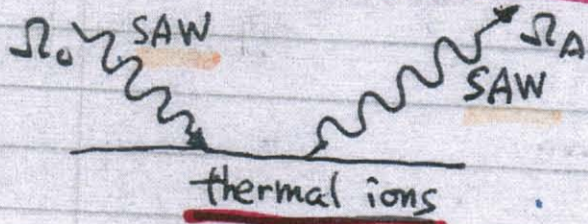 Ω₀ SAW Ω_A
SAW
thermal ions